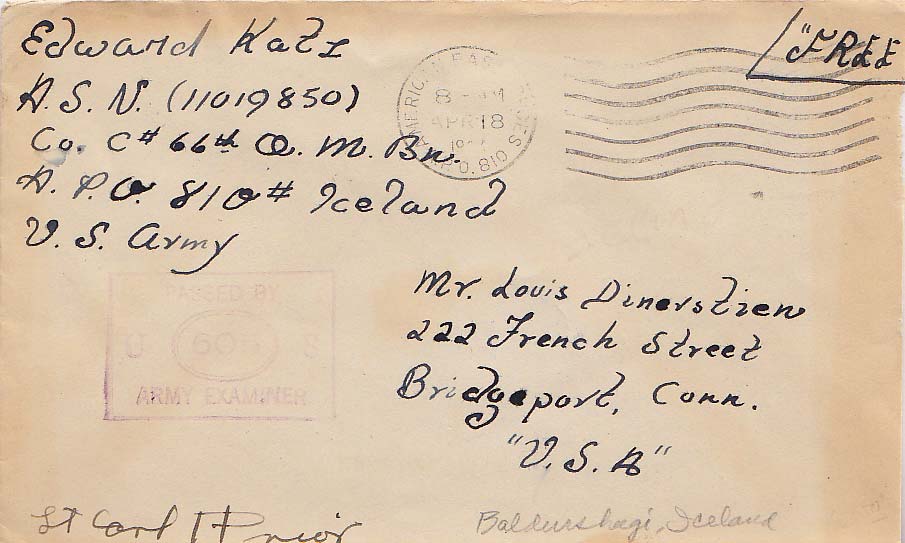 Edward Katz
A.S.N. (11019850)
Co. C# 66th Q.M. Bn.
A.P.O. 810# Iceland
U.S. Army
"FREE
8 AM
APR 18
A.P.O. 810
PASSED BY
U 60 S
ARMY EXAMINER
Mr. Louis Dinerstien
222 French Street
Bridgeport, Conn.
"U.S.A"
Lt Carl H Prior
Baldurshagi, Iceland